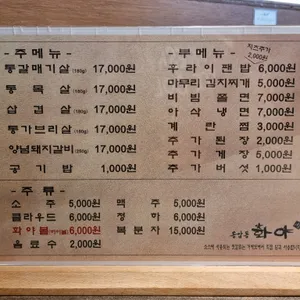 - 주메뉴 -
통갈매기살(180g) 17,000원
통목살(180g) 17,000원
삼겹살(180g) 17,000원
통가브리살(180g) 17,000원
양념돼지갈비(250g) 17,000원
공기밥 1,000원
- 부메뉴 -
치즈추가 2,000원
후라이팬밥 6,000원
마무리김치찌개 5,000원
비빔쫄면 7,000원
아삭냉면 7,000원
계란찜 3,000원
추가된장 2,000원
추가게장 5,000원
추가버섯 1,000원
- 주류 -
소주 5,000원 맥주 5,000원
클라우드 5,000원 청하 6,000원
화아몰 6,000원 복분자 15,000원
음료수 2,000원
화아